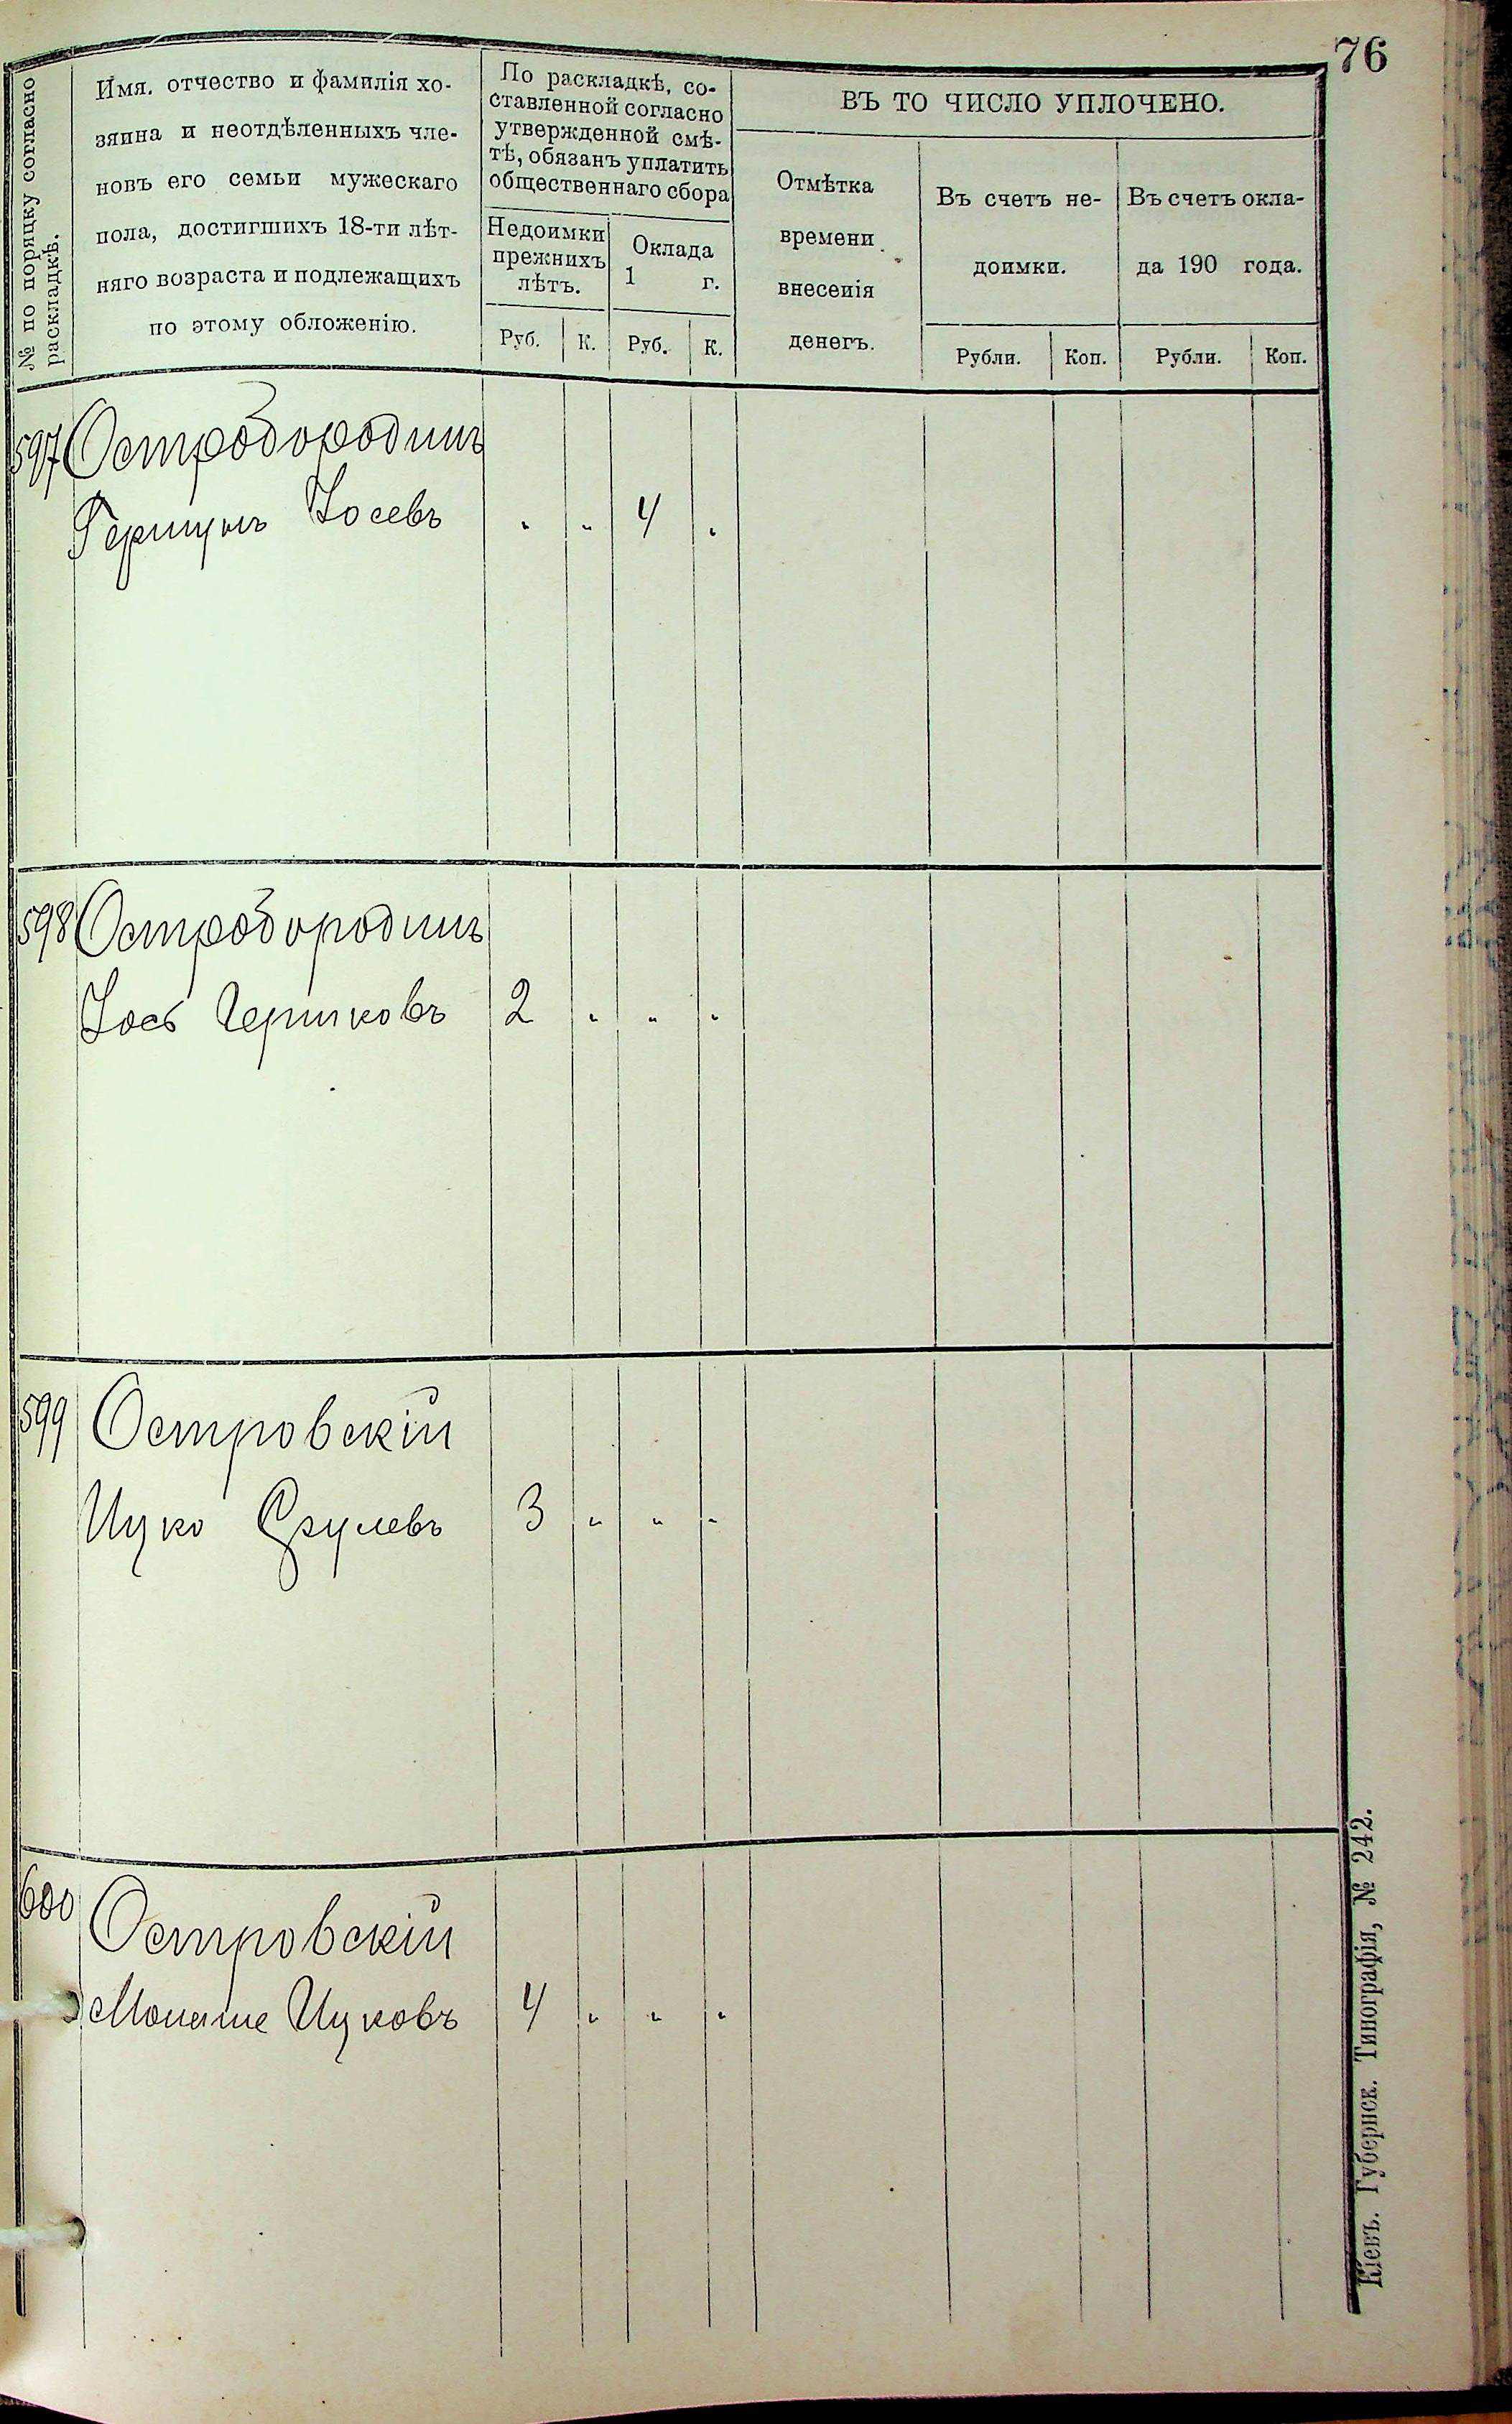 76
№ по порядку согласно
раскладкѣ.
Имя, отчество и фамилія хо-
зяина и неотдѣленныхъ чле-
новъ его семьи мужескаго
пола, достигшихъ 18-ти лѣт-
няго возраста и подлежащихъ
по этому обложенію.
По раскладкѣ, со-
ставленной согласно
утвержденной смѣ-
тѣ, обязанъ уплатить
общественнаго сбора
Недоимки
прежнихъ
лѣтъ.
Руб. К.
Оклада
1 г.
Руб. К.
ВЪ ТО ЧИСЛО УПЛОЧЕНО.
Отмѣтка
времени
внесенія
денегъ.
Въ счетъ не-
доимки.
Рубли. Коп.
Въ счетъ окла-
да 190 года.
Рубли. Коп.
597 Остробородинъ
Гершунъ Іосевъ " " 4 "
598 Остробородинъ
Іось Гершковъ 2 " " "
599 Островскій
Ицко Срулевъ 3 " " "
600 Островскій
Монаше Ицковъ 4 " " "
Кіевъ. Губернск. Типографія, № 242.